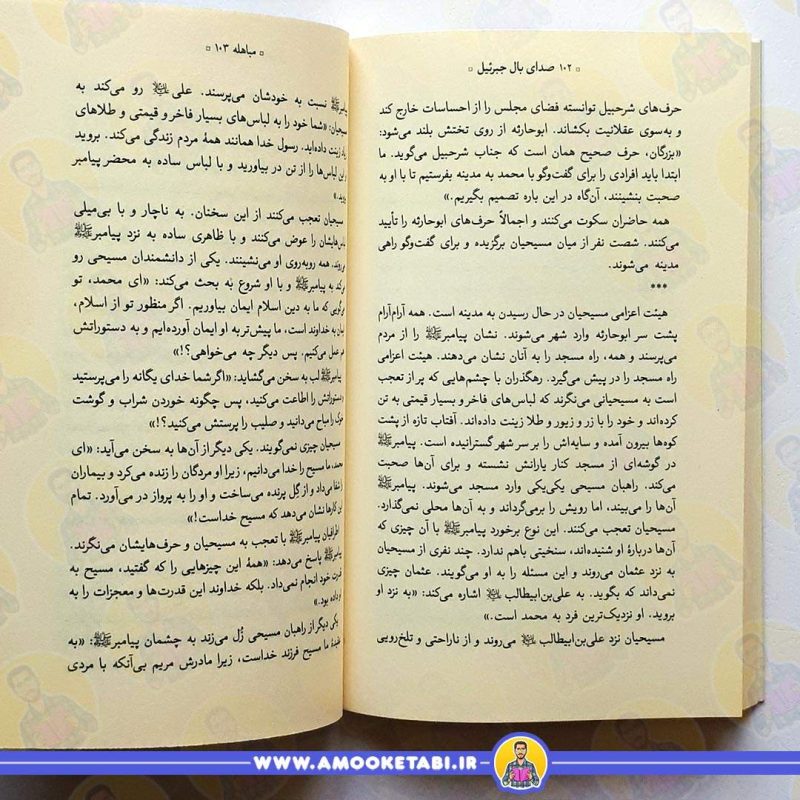 ۱۰۲ صدای بال جبرئیل
حرف‌های شرحبیل توانسته فضای مجلس را از احساسات خارج کند
و به‌سوی عقلانیت بکشاند. ابوحارثه از روی تختش بلند می‌شود:
«بزرگان، حرف صحیح همان است که جناب شرحبیل می‌گوید. ما
ابتدا باید افرادی را برای گفت‌وگو با محمد به مدینه بفرستیم تا با او به
صحبت بنشینند، آن‌گاه در این باره تصمیم بگیریم.»
همه حاضران سکوت می‌کنند و اجمالاً حرف‌های ابوحارثه را تأیید
می‌کنند. شصت نفر از میان مسیحیان برگزیده و برای گفت‌وگو راهی
مدینه می‌شوند.
***
هیئت اعزامی مسیحیان در حال رسیدن به مدینه است. همه آرام‌آرام
پشت سر ابوحارثه وارد شهر می‌شوند. نشان پیامبرﷺ را از مردم
می‌پرسند و همه، راه مسجد را به آنان نشان می‌دهند. هیئت اعزامی
راه مسجد را در پیش می‌گیرد. رهگذران با چشم‌هایی که پر از تعجب
است به مسیحیانی می‌نگرند که لباس‌های فاخر و بسیار قیمتی به تن
کرده‌اند و خود را با زر و زیور و طلا زینت داده‌اند. آفتاب تازه از پشت
کوه‌ها بیرون آمده و سایه‌اش را بر سر شهر گسترانیده است. پیامبرﷺ
در گوشه‌ای از مسجد کنار یارانش نشسته و برای آن‌ها صحبت
می‌کند. راهبان مسیحی یکی‌یکی وارد مسجد می‌شوند. پیامبرﷺ
آن‌ها را می‌بیند، اما رویش را برمی‌گرداند و به آن‌ها محلی نمی‌گذارد.
مسیحیان تعجب می‌کنند. این نوع برخورد پیامبرﷺ با آن چیزی که
آن‌ها دربارهٔ او شنیده‌اند، سنخیتی باهم ندارد. چند نفری از مسیحیان
به نزد عثمان می‌روند و این مسئله را به او می‌گویند. عثمان چیزی
نمی‌داند که بگوید. به علی‌بن‌ابیطالب اشاره می‌کند: «به نزد او
بروید. او نزدیک‌ترین فرد به محمد است.»
مسیحیان نزد علی‌بن‌ابیطالب می‌روند و از ناراحتی و تلخ‌رویی
مباهله ۱۰۳
پیامبرﷺ نسبت به خودشان می‌پرسند. علی رو می‌کند به
مسیحیان: «شما خود را به لباس‌های بسیار فاخر و قیمتی و طلاهای
زینت داده‌اید. رسول خدا همانند همهٔ مردم زندگی می‌کند. بروید
این لباس‌ها را از تن در بیاورید و با لباس ساده به محضر پیامبر
مسیحیان تعجب می‌کنند از این سخنان. به ناچار و با بی‌میلی
را عوض می‌کنند و با ظاهری ساده به نزد پیامبرﷺ
همه روبه‌روی او می‌نشینند. یکی از دانشمندان مسیحی رو
به پیامبرﷺ و با او شروع به بحث می‌کند: «ای محمد، تو
که ما به دین اسلام ایمان بیاوریم. اگر منظور تو از اسلام،
به خداوند است، ما پیش‌تر به او ایمان آورده‌ایم و به دستوراتش
عمل می‌کنیم. پس دیگر چه می‌خواهی؟!»
پیامبرﷺ لب به سخن می‌گشاید: «اگر شما خدای یگانه را می‌پرستید
دستوراتش را اطاعت می‌کنید، پس چگونه خوردن شراب و گوشت
را مباح می‌دانید و صلیب را پرستش می‌کنید؟!»
مسیحیان چیزی نمی‌گویند. یکی دیگر از آن‌ها به سخن می‌آید: «ای
ما مسیح را خدا می‌دانیم، زیرا او مردگان را زنده می‌کرد و بیماران
می‌داد و از گِل پرنده می‌ساخت و او را به پرواز در می‌آورد. تمام
کارها نشان می‌دهد که مسیح خداست!»
اطرافیان پیامبرﷺ با تعجب به مسیحیان و حرف‌هایشان می‌نگرند.
پیامبرﷺ پاسخ می‌دهد: «همه این چیزهایی را که گفتید، مسیح به
قدرت خود انجام نمی‌داد. بلکه خداوند این قدرت‌ها و معجزات را به
داده بود.»
یکی دیگر از راهبان مسیحی زُل می‌زند به چشمان پیامبرﷺ: «به
ما مسیح فرزند خداست، زیرا مادرش مریم بی‌آنکه با مردی
WWW.AMOOKETABI.IR